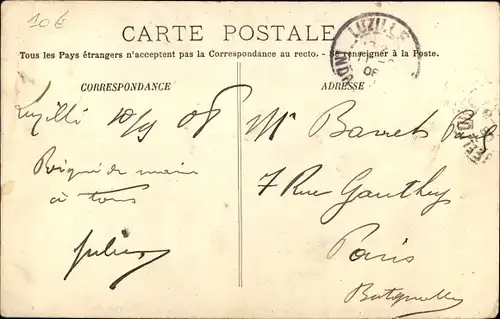 10€
CARTE POSTALE
Tous les Pays étrangers n'acceptent pas la Correspondance au recto. - Se renseigner à la Poste.
LUZILLÉ
06
CORRESPONDANCE
ADRESSE
Luzillé 10/9 08
Poignée de main
à tous
Julien
Mr Barret Paul
7 Rue Gauthey
Paris
Batignolles